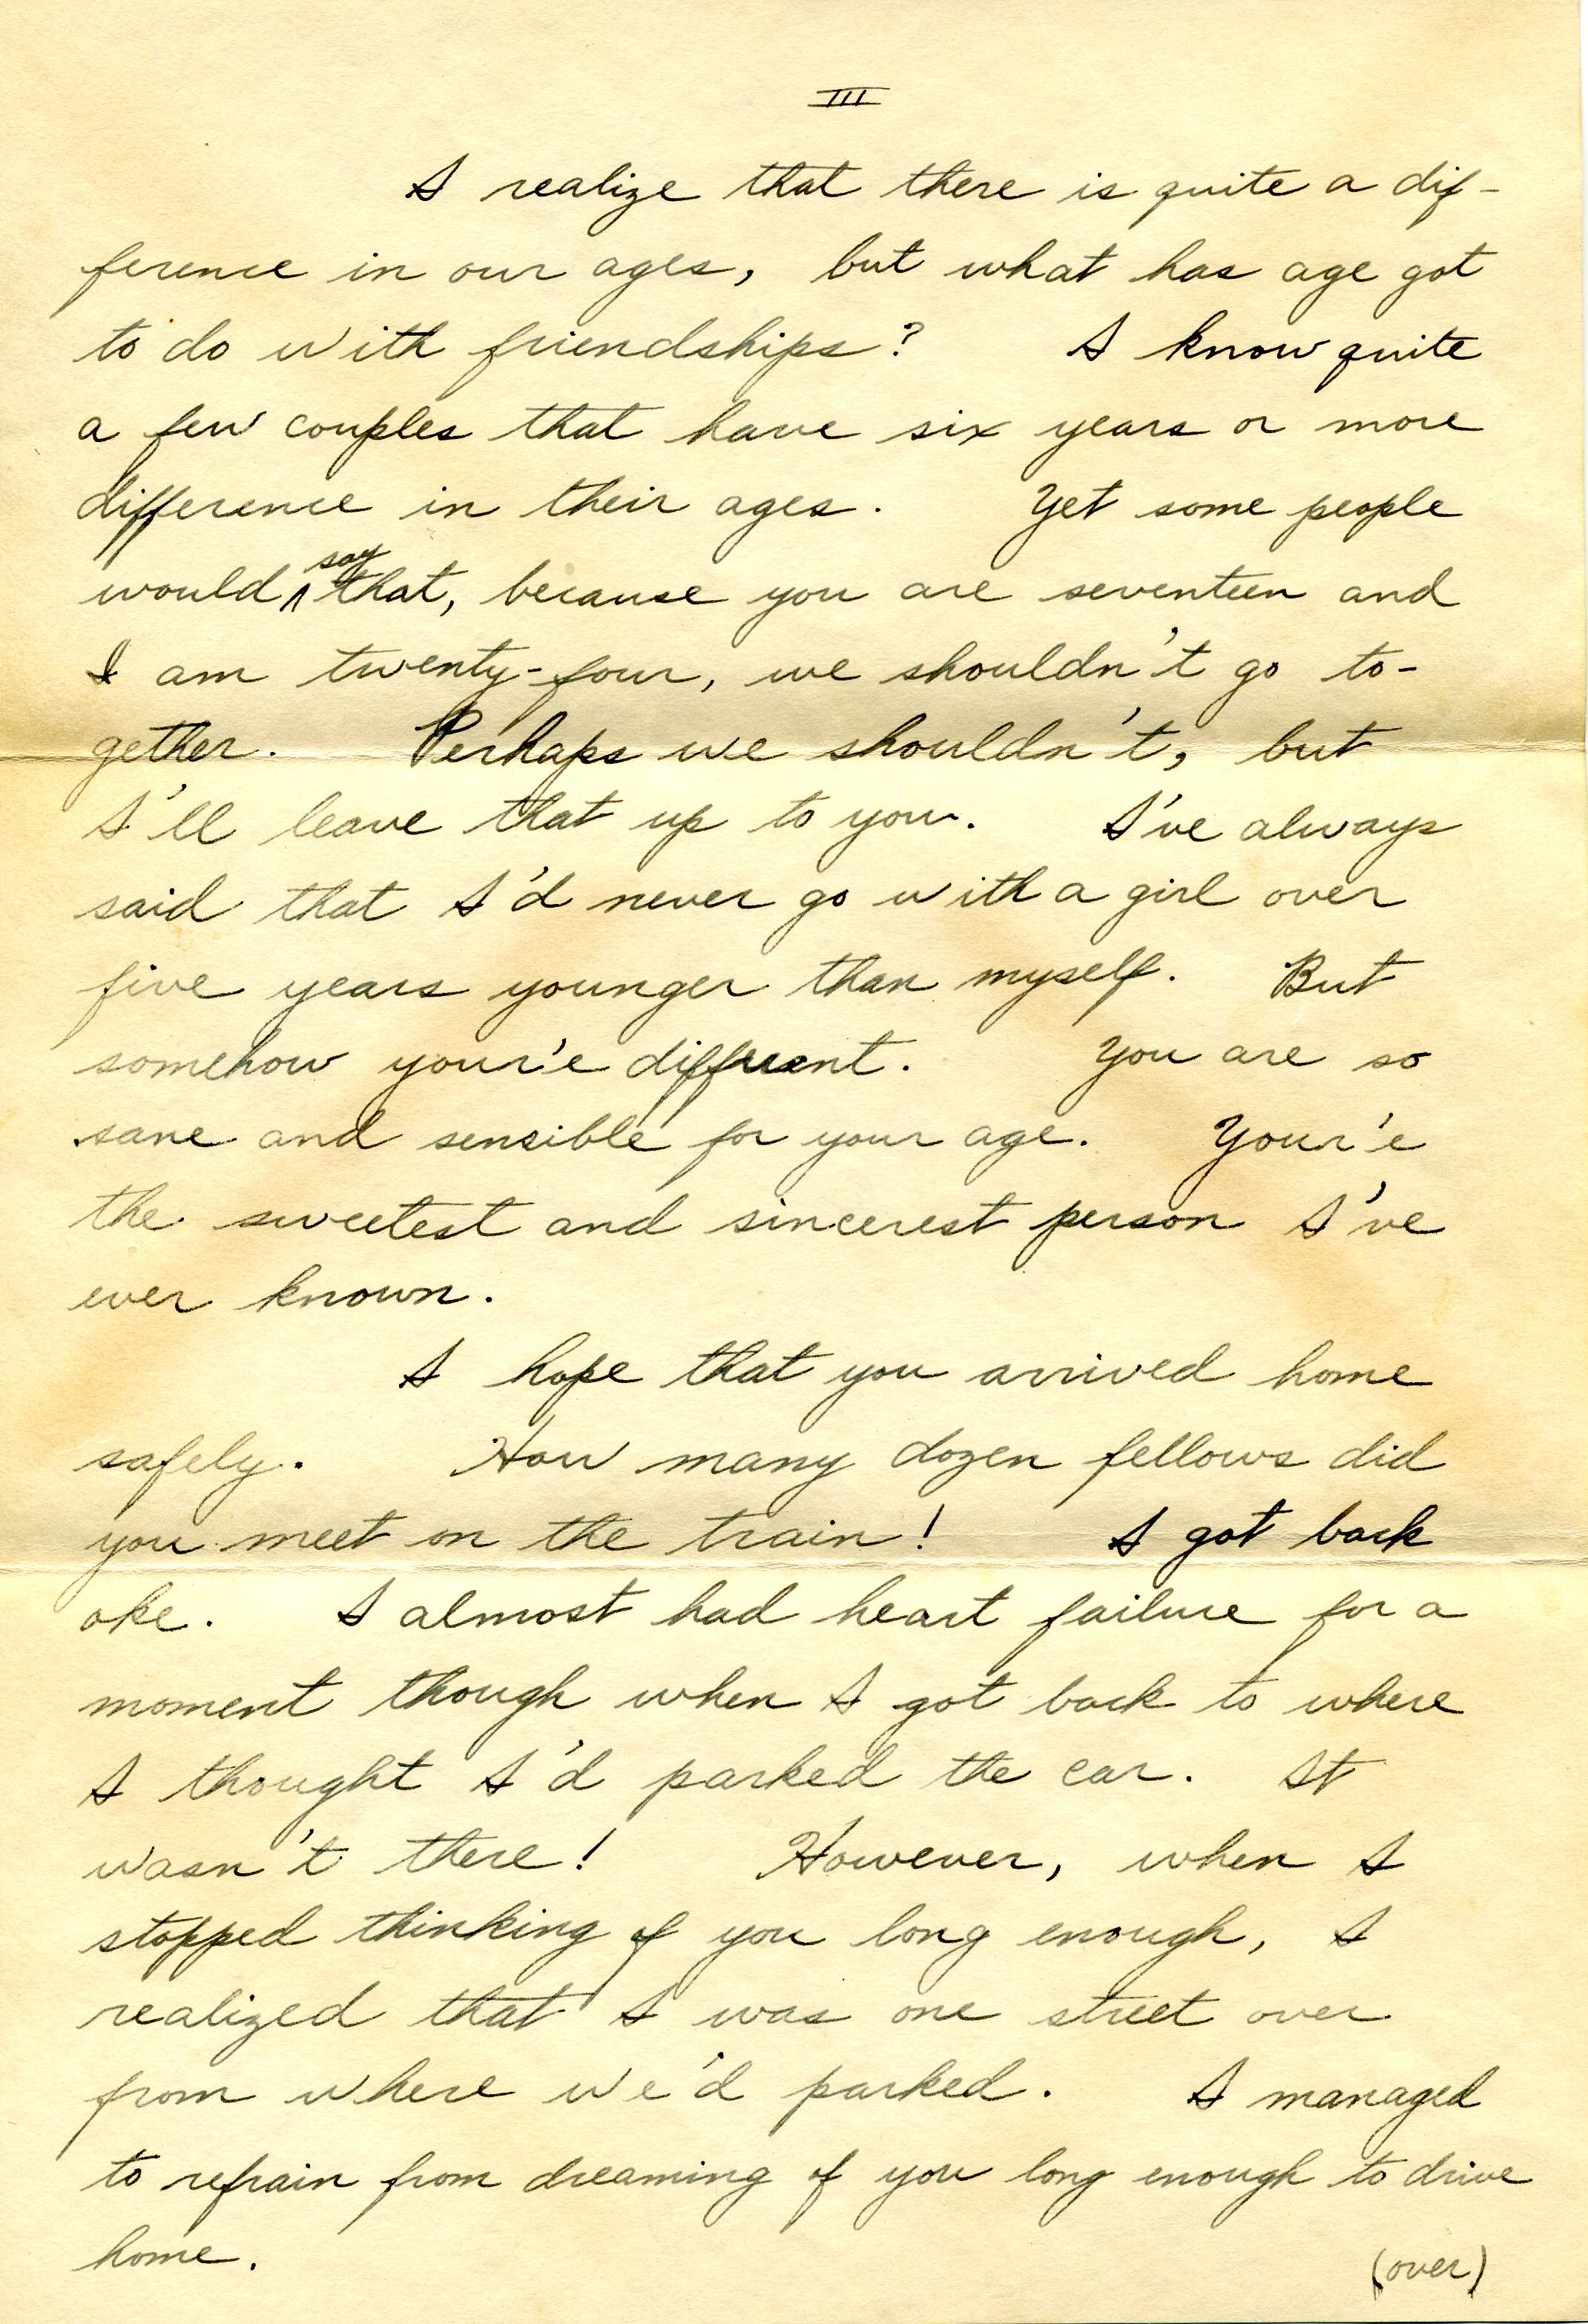 III
I realize that there is quite a dif-
ference in our ages, but what has age got
to do with friendships? I know quite
a few couples that have six years or more
difference in their ages. Yet some people
would say that, because you are seventeen and
I am twenty-four, we shouldn't go to-
gether. Perhaps we shouldn't, but
I'll leave that up to you. I've always
said that I'd never go with a girl over
five years younger than myself. But
somehow your'e different. You are so
sane and sensible for your age. Your'e
the sweetest and sincerest person I've
ever known.
I hope that you arrived home
safely. How many dozen fellows did
you meet on the train! I got back
oke. I almost had heart failure for a
moment though when I got back to where
I thought I'd parked the car. It
wasn't there! However, when I
stopped thinking of you long enough, I
realized that I was one street over
from where we'd parked. I managed
to refrain from dreaming of you long enough to drive
home.
(over)